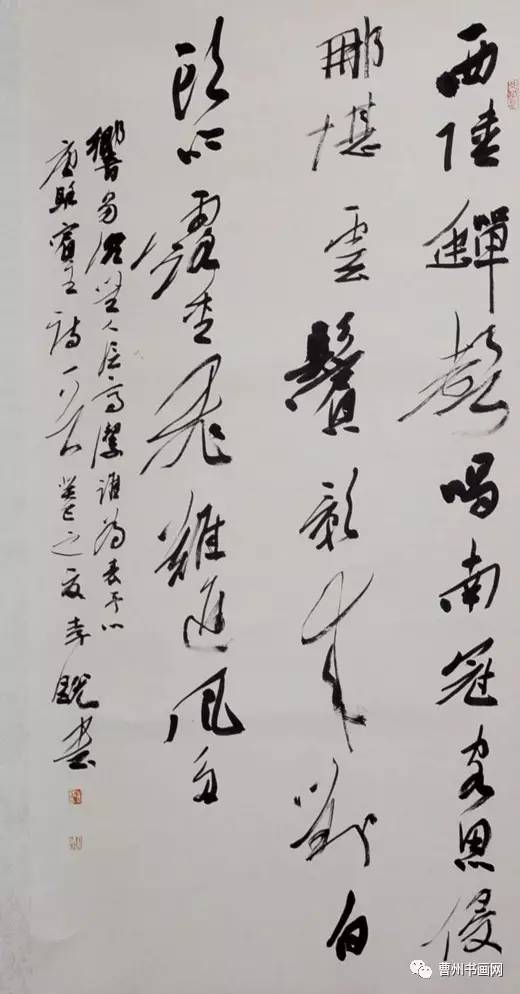 西陸蟬聲唱南冠客思侵
那堪雲鬢影來對白
頭吟露重飛難進風多
響易沉無人信高潔誰為表予心
唐駱賓王詩一首癸巳之夏書
曹州书画网